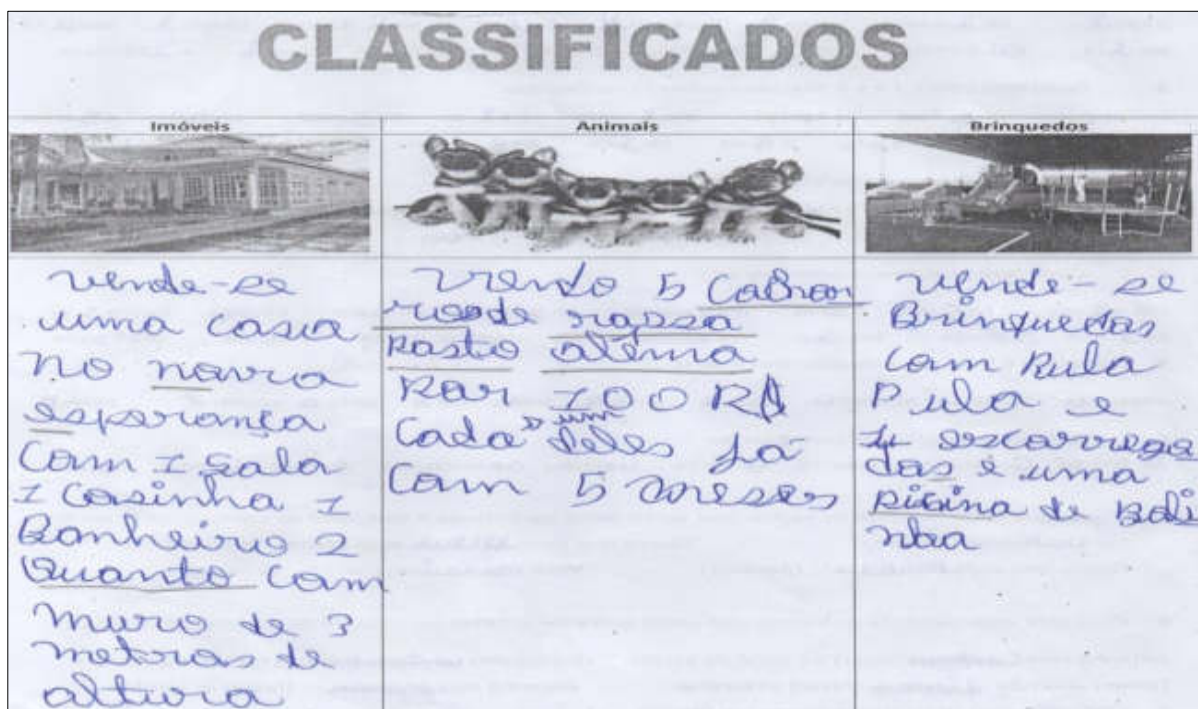 CLASSIFICADOS
Imóveis
vende-se
uma casa
no novra
esperança
com 1 sala
1 cosinha 1
Banheiro 2
Quanto com
muro de 3
metros de
altura
Animais
Vendo 5 cachor
roode rapsa
pasto alema
Por 100 R$
cada um deles ja
com 5 meses
Brinquedos
vende-se
Brinquedos
com Pula
Pula e
4 escorrega
dos e uma
picina de Boli
nha